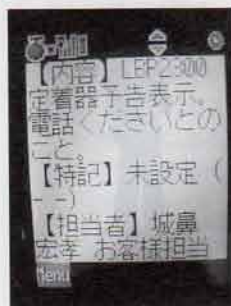 【内容】LBP2300
定着器予告表示。
電話くださいとの
こと。
【特記】未設定(
--)
【担当者】城鼻
宏孝 お客様担当
Menu